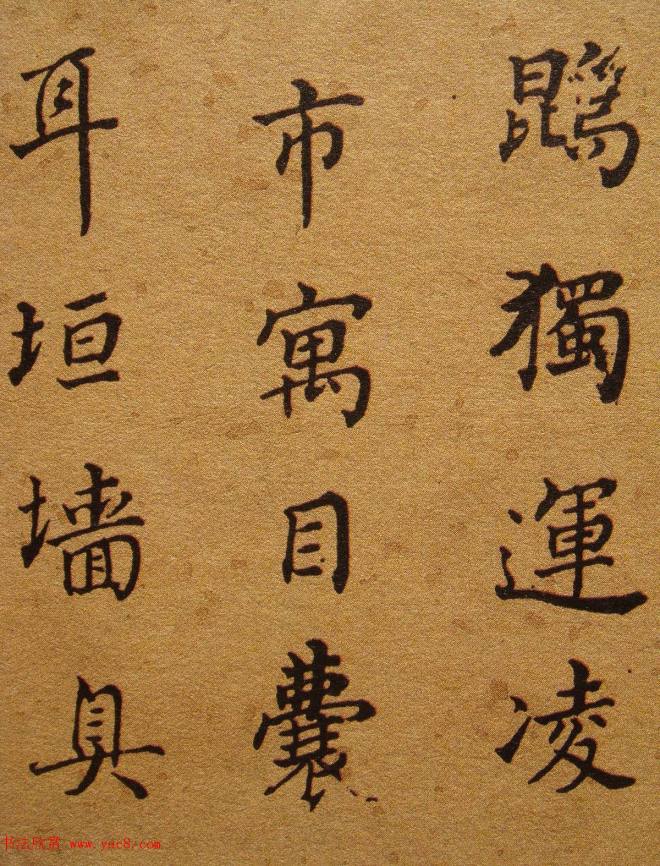 鵾獨運凌
市寓目囊
耳垣墙具
书法欣赏 www.yac8.com